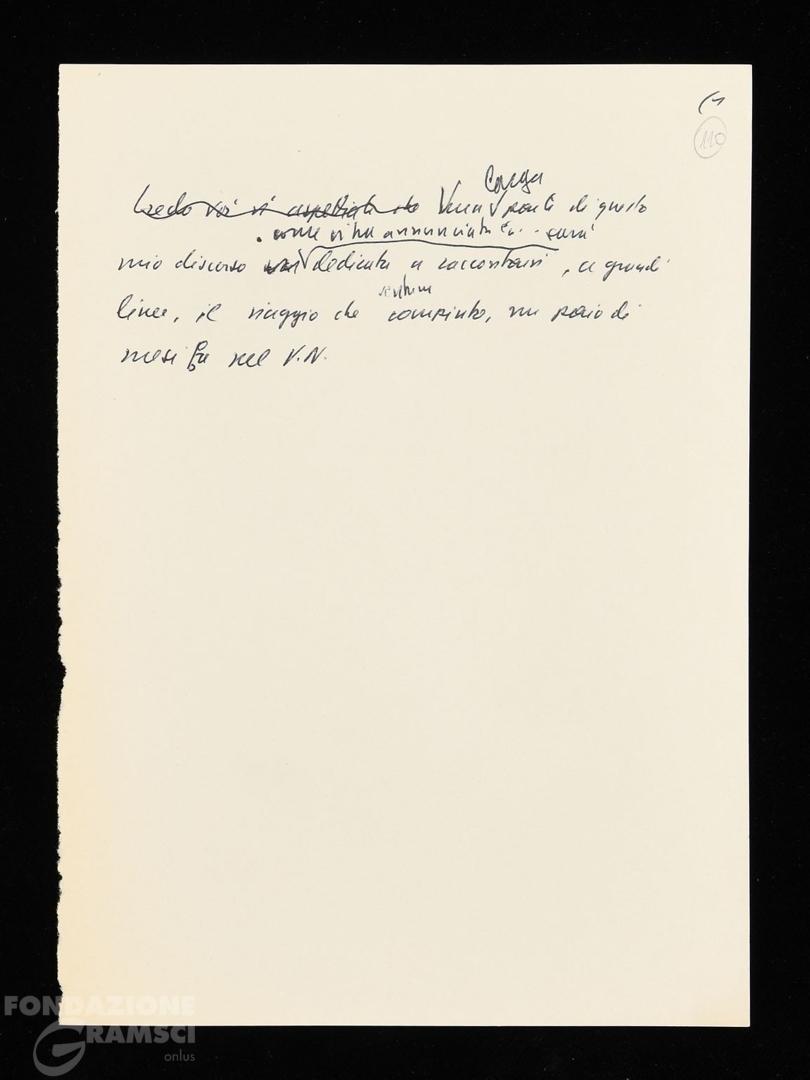 (1
110
Credo voi vi aspettiate che Una larga parte di questo
come vi ha annunciato sarà
mio discorso sarà dedicata a raccontarvi, a grandi
linee, il viaggio che compiuto, un paio di
mesi fa nel V.N.
FONDAZIONE
GRAMSCI
onlus